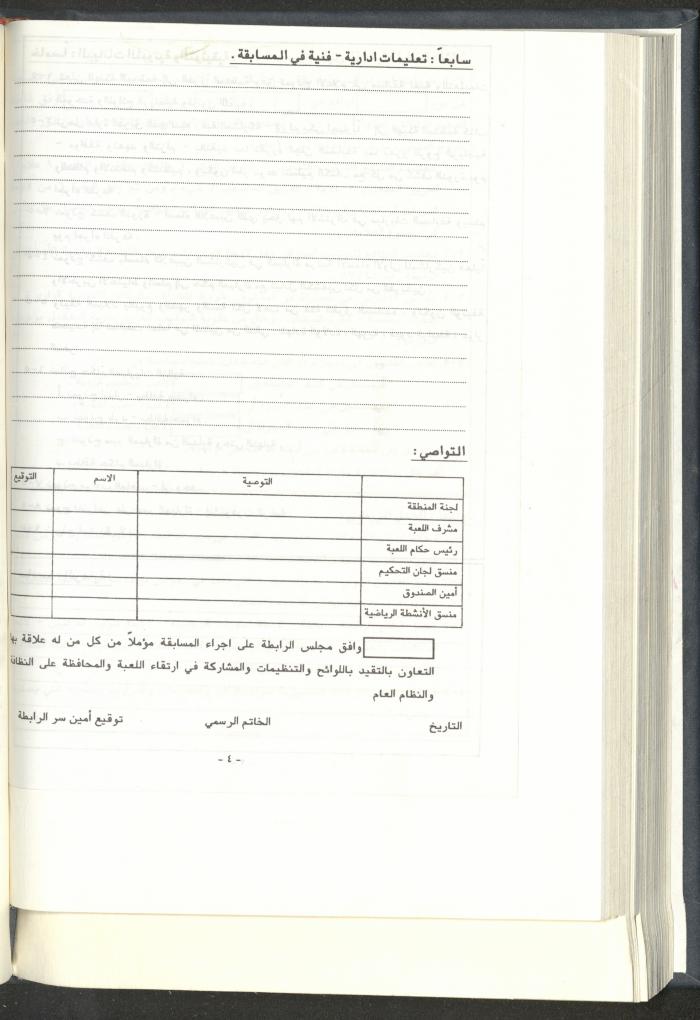 سابعاً : تعليمات ادارية - فنية في المسابقة .
التواصي :
التوصية الاسم التوقيع
لجنة المنطقة
مشرف اللعبة
رئيس حكام اللعبة
منسق لجان التحكيم
أمين الصندوق
منسق الأنشطة الرياضية
وافق مجلس الرابطة على اجراء المسابقة مؤملاً من كل من له علاقة بها
التعاون بالتقيد باللوائح والتنظيمات والمشاركة في ارتقاء اللعبة والمحافظة على النظافة
والنظام العام
التاريخ الخاتم الرسمي توقيع أمين سر الرابطة
- ٤ -